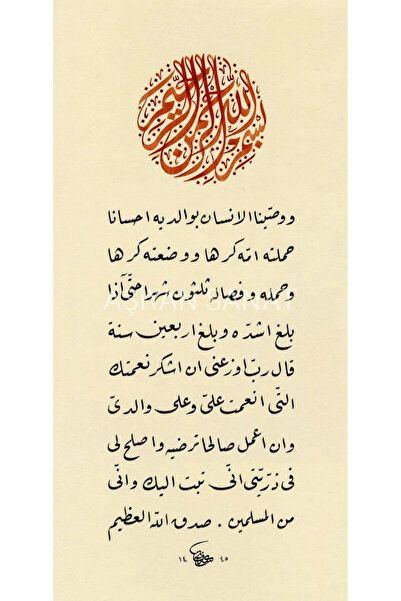 بسم الله الرحمن الرحيم
ووصّينا الانسان بوالديه احسانا
حملته امّه كرها ووضعته كرها
وحمله وفصاله ثلثون شهرا حتّى آذا
ASHAN SANAT
بلغ اشدّه وبلغ اربعين سنة
قال ربّ اوزعنى ان اشكر نعمتك
التّى انعمت علىّ وعلى والدىّ
وان اعمل صالحا ترضيه واصلح لى
فى ذرّيّتى انّى تبت اليك وانّى
من المسلمين . صدق الله العظيم
١٤ ٤٥